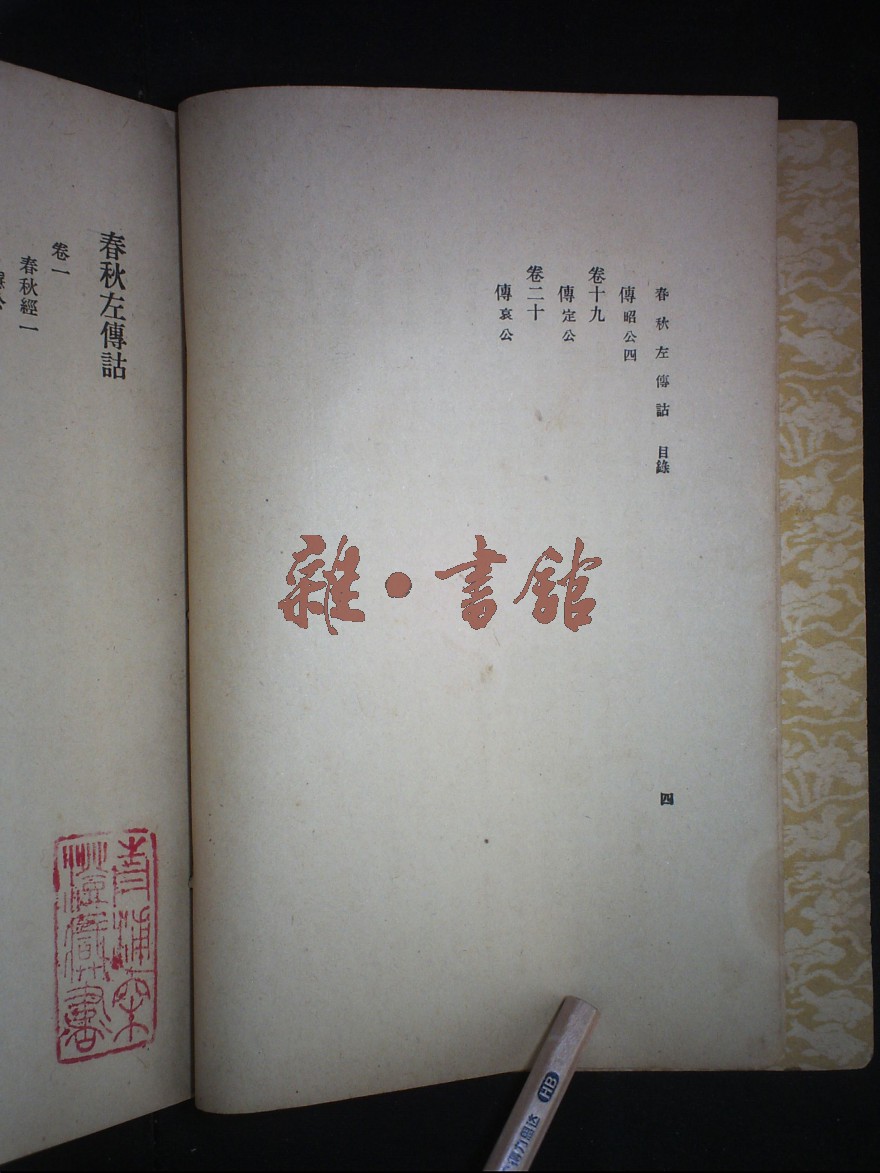 春秋左傳詁 目錄 四
傳昭公四
卷十九
傳定公
卷二十
傳哀公
春秋左傳詁
卷一
春秋經一
雜・書館
HB